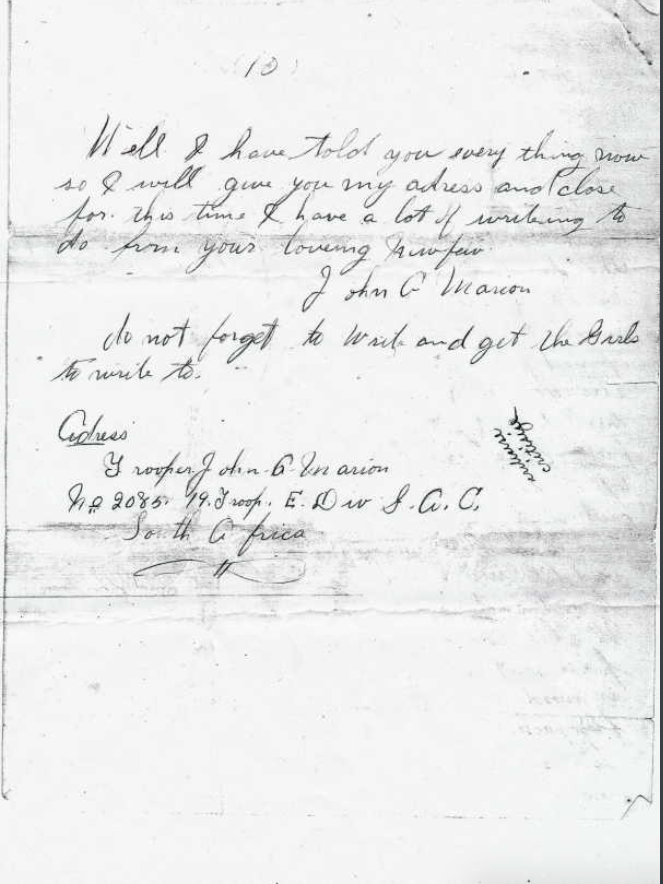 (10)
Well I have told you every thing now
so I will give you my adress and close
for this time I have a lot of writeing to
do from your loveing
John A Marion
do not forget to write and get the Girls
to write to.
Adress
Trooper John A Marion
No 2085. 19. Troop. E. Div S. A. C.
South Africa